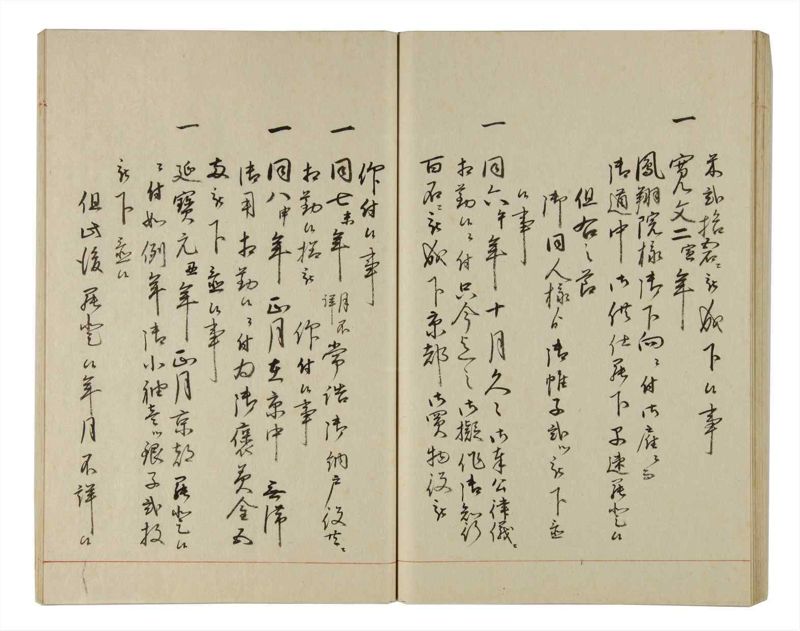 米弐拾石ニ被成下候事
一 寛文二寅年
鳳翔院様御下向ニ付御雇
御道中御供仕罷下早速罷登候
但右之節
御同人様ゟ御帷子弐ツ被下置
候事
一 同六午年十月久々御奉公律儀ニ
相勤候ニ付只今迄之御擬作御知行
百石ニ被成下京都御買物役被
仰付候事
一 同七未年月不詳常詰御納戸役共ニ
相勤候様被 仰付候事
一 同八申年正月在京中無滞
御用相勤候ニ付為御褒美金五
両被下置候事
一 延宝元丑年正月京都罷登候
ニ付如例年御小袖壱ツ銀子弐枚
被下置候
但此後罷登候年月不詳候